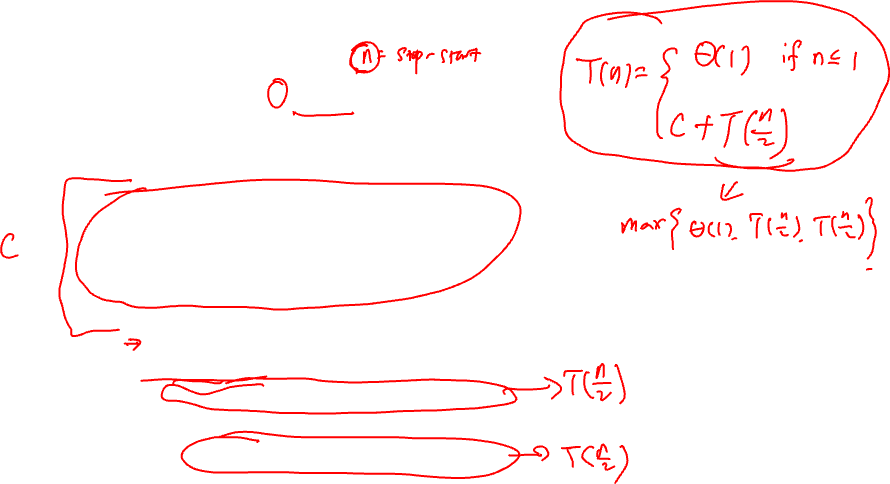 n = stop - start
T(n) = { Θ(1) if n ≤ 1
C + T(n/2)
max { Θ(1), T(n/2), T(n/2) }
C
T(n/2)
T(n/2)